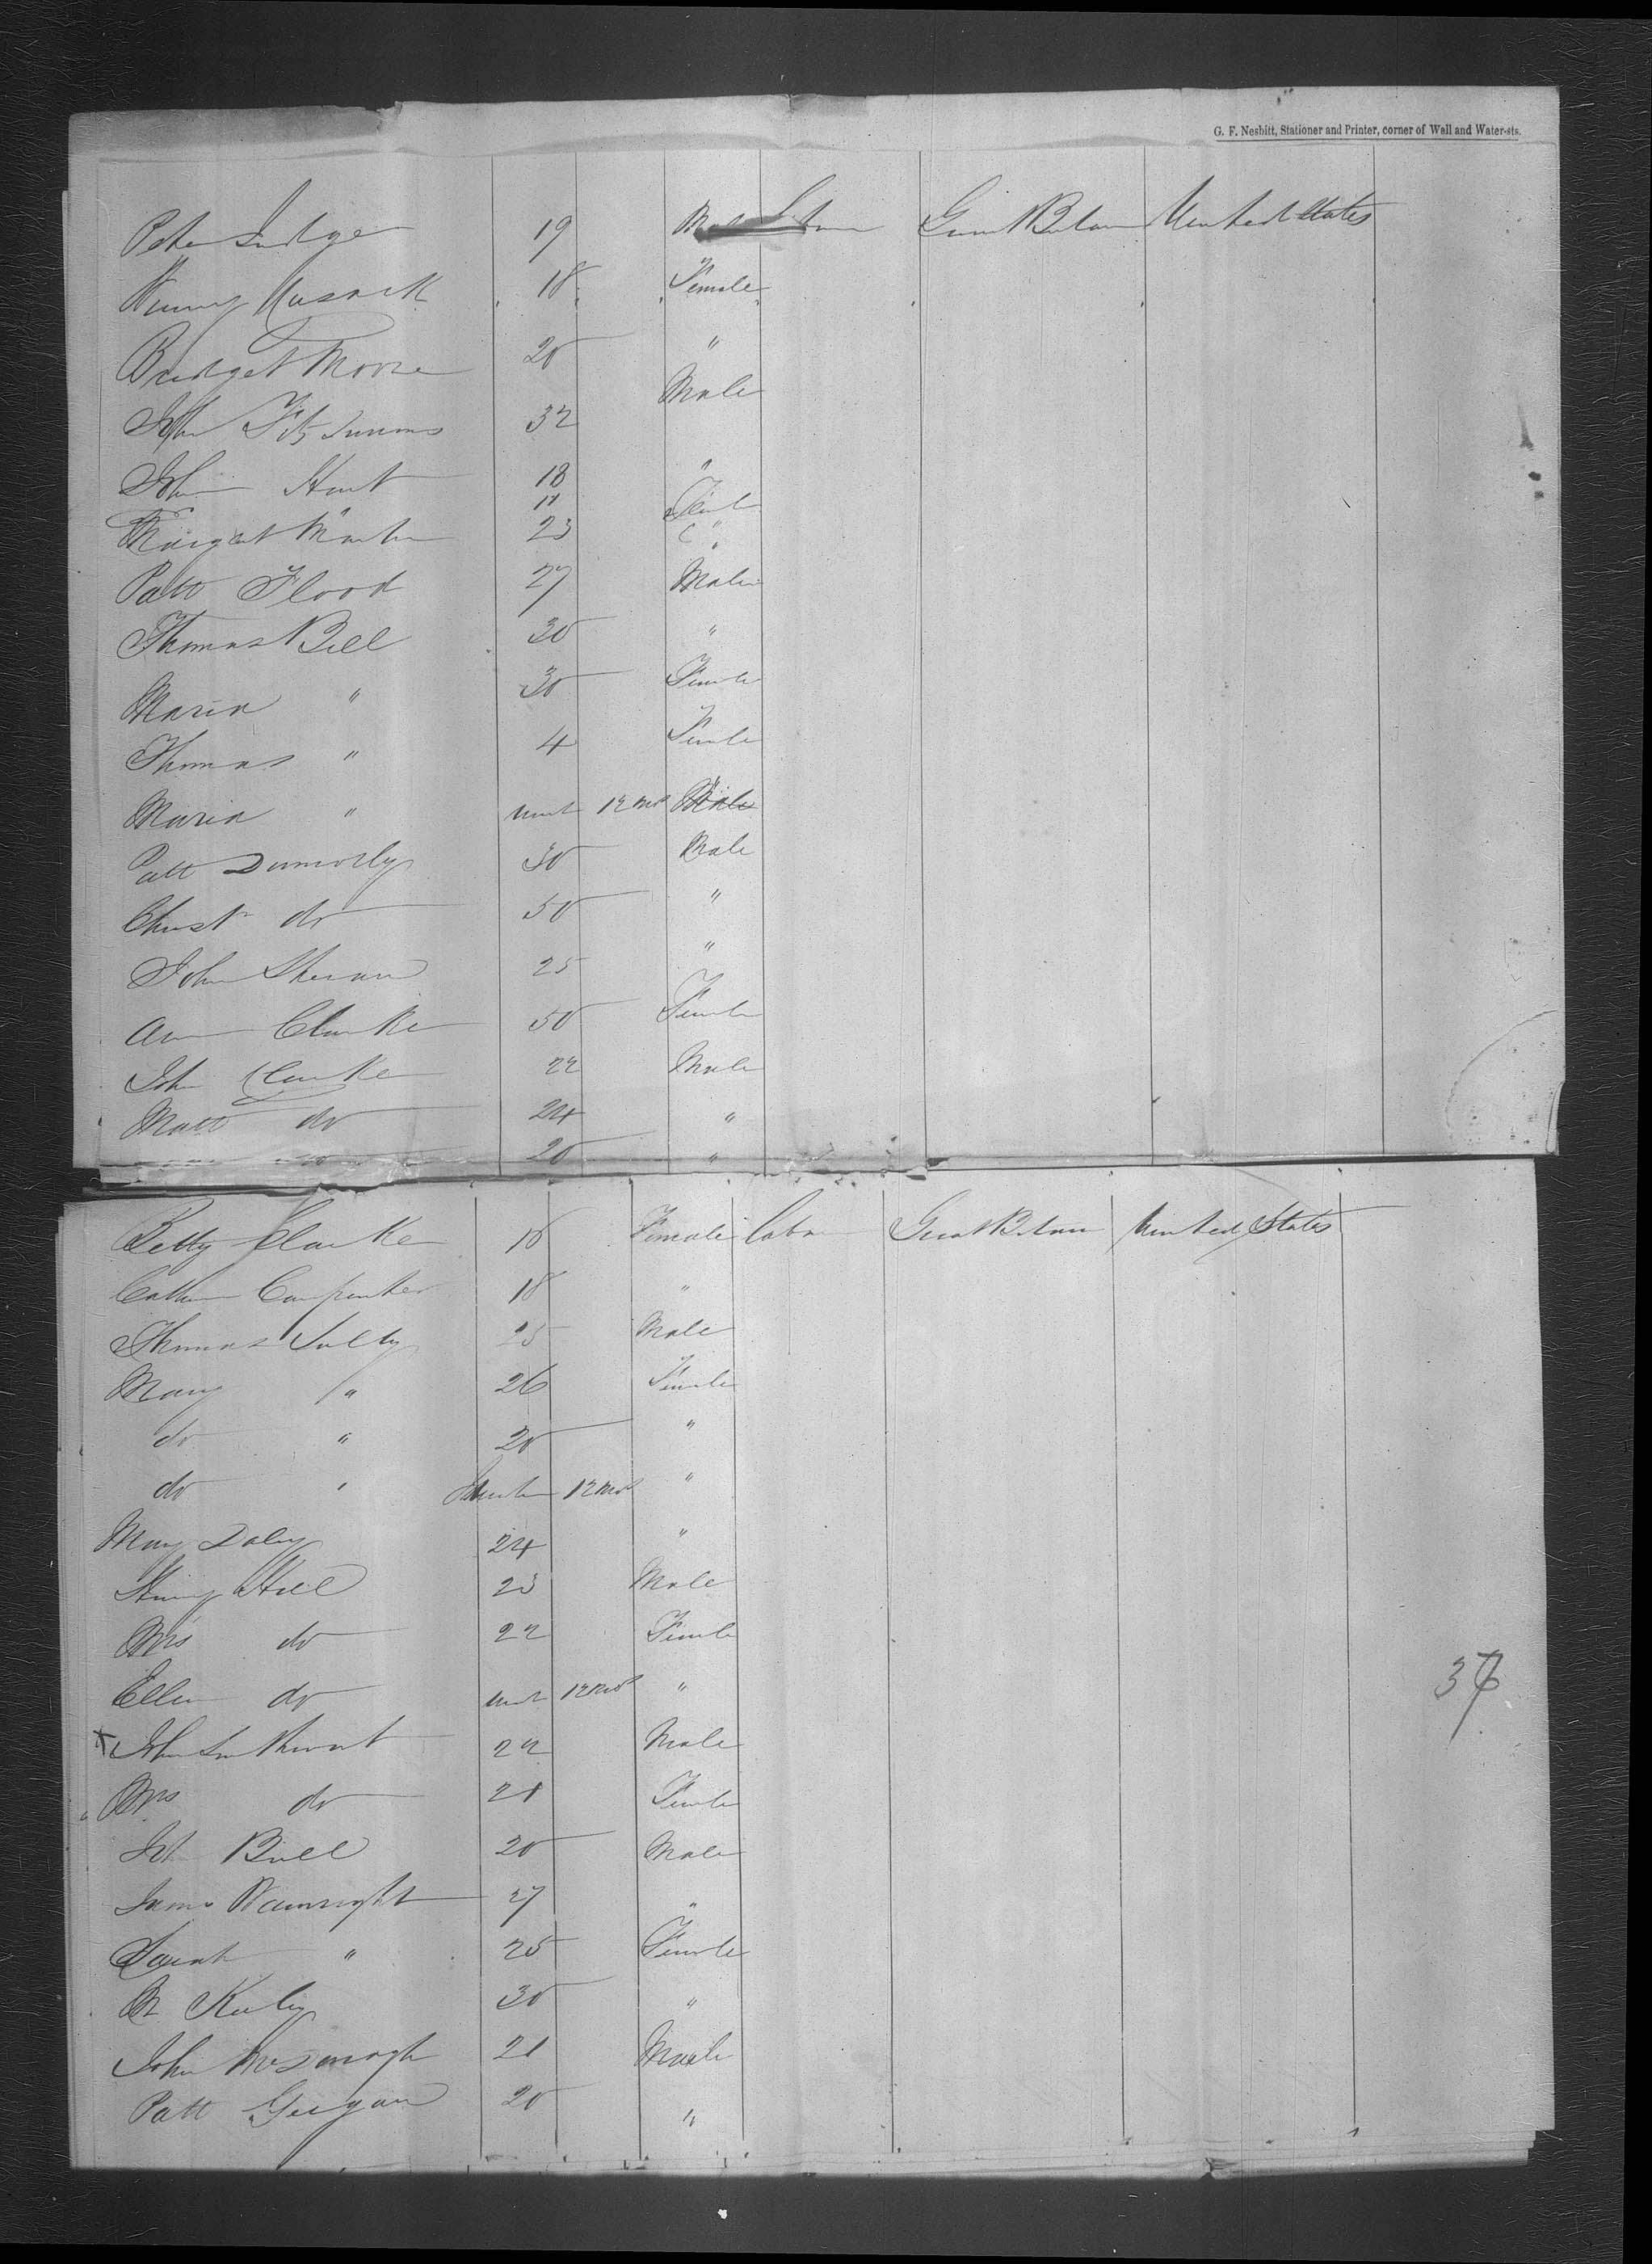 G. F. Nesbitt, Stationer and Printer, corner of Wall and Water-sts.
Peter Judge 19 Male Labour Great Britain United States
18 Female
Bridget Moore 20 "
Male
John Fitzsimmons 32
John Hunt 18 "
" 11 Female
Margaret Martin 23 "
Patt Flood 27 Male
Thomas Bell 30 "
Maria " 30 Female
Thomas " 4 Female
Maria " 12 Mos Male
Patt Donnorly 30 Male
Christ do 50 "
John Sheran 25 "
Ann Clarke 50 Female
John Clarke 22 Male
Matt do 24 "
do 20 "
Betty Clarke 16 Female Labour Great Britain United States
Cathn Carpenter 18 "
Thomas Tully 25 Male
Mary " 26 Female
do " 20 "
do " 12 Mos "
Mary Daly 24 "
Henry Hill 23 Male
Mrs do 22 Female
Ellen do 12 Mos "
37
x John 22 Male
" Mrs do 21 Female
Bull 20 Male
James Wainwright 27 "
Sarah " 25 Female
Keely 30 "
John McDonogh 21 Male
Patt Geegan 20 "